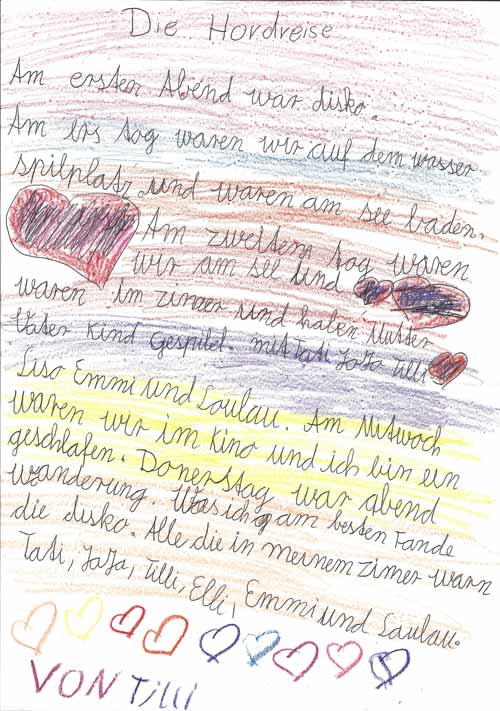 Die Hordreise
Am ersten Abend war disko.
Am ers tag waren wir auf dem wasser
spilplatz. und waren am see baden.
Am zweitem tag waren
wir am see und
waren im zimer und haben Mutter
Vater Kind Gespild. mit Tati JaJa Tilli
Lisa Emmi und Laulau. Am Mitwoch
waren wir im Kino und ich bin ein
geschlafen. Donerstag war abend
wanderung. Was ich am besten Fande
die disko. Alle die in meinem zimer warn
Tati, JaJa, Tilli, Elli, Emmi und Laulau.
VON Tilli